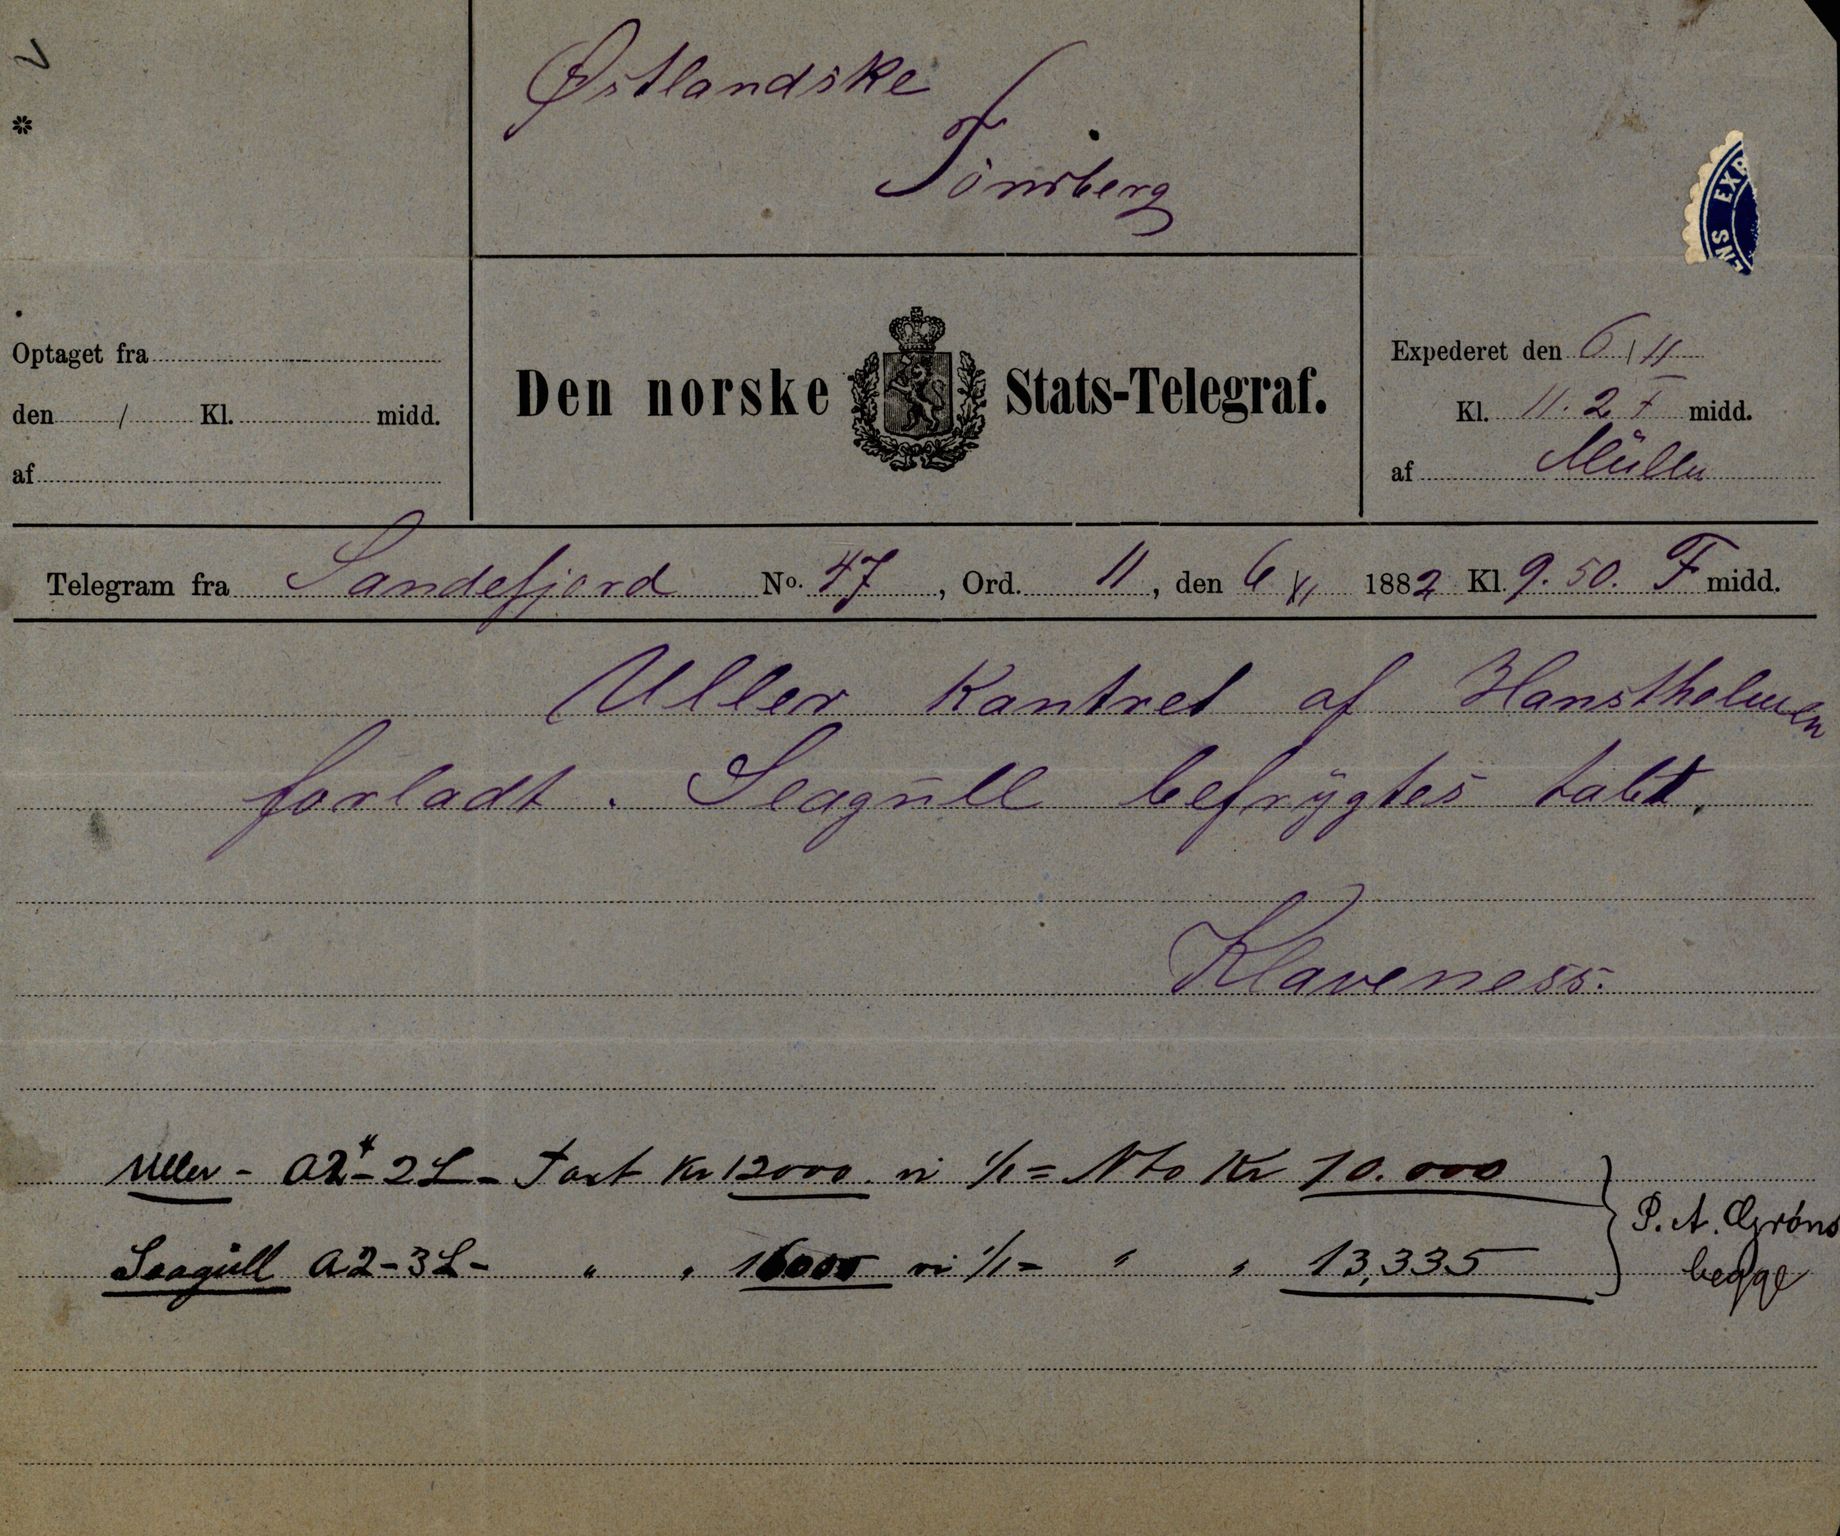 Østlandske
Tönsberg
ENS EXP
Optaget fra
den / Kl. midd.
af
Den norske Stats-Telegraf.
Expederet den 6 / 11
Kl. 11.2 F midd.
af Müller
Telegram fra Sandefjord No. 47, Ord. 11, den 6/11 1882 Kl. 9.50. F midd.
Uller Kantret af Hanstholmen
forladt. Seagull befrygtes tabt.
Klaveness.
Uller - A2 - 2L - Taxt Kr 12000 vi 1/1 = Nto Kr 10.000
Seagull A2 - 3L - " " 16000 vi 1/1 = " " 13,335
P. A. Grøns
begge